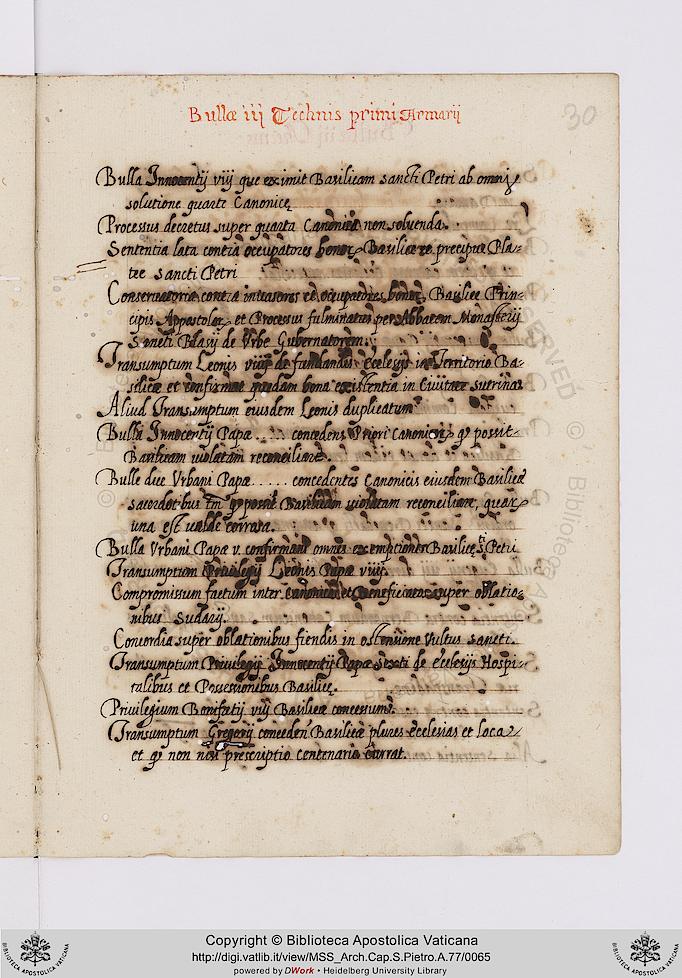 Bullæ iij Technis primi Armarij
30
Bulla Innocentij viij que eximit Basilicam sancti Petri ab omni
solutione quarte Canonicę
Processus decretus super quarta Canonica non soluenda.
Sententia lata contra occupatores bonor Basilicæ et precipuæ Pla-
teæ sancti Petri
Conseruatoria contra inuasores et occupatores bonor Basilice Prin-
cipis Appostolor et Processus fulminatus per Abbatem Monasterij
Sancti Blasij de Vrbe Gubernatorem.
Transumptum Leonis viiij de fundandis Ecclesijs in Territorio Ba-
silicæ et confirmat quædam bona existentia in Ciuitate
Aliud Transumptum eiusdem Leonis duplicatum
Bulla Innocentij Papæ .... concedens Priori Canonicor qp possit
Basilicam uiolatam reconciliare.
Bulle due Vrbani Papæ ..... concedentes Canonicis eiusdem Basilicæ
sacerdotibus tm qp possit Basilicam uiolatam reconciliare, quar
una est ualde corrosa.
Bulla Vrbani Papæ v. confirmans omnes exemptiones Basilicę sti Petri
Transumptum Priuilegij Leonis Papæ viiij.
Compromissum factum inter Canonicos et Beneficiatos super oblatio-
nibus Sudarij.
Concordia super oblationibus fiendis in ostensione Vultus sancti.
Transumptum Priuilegij Innocentij Papæ Sexti de Ecclesijs Hospi-
talibus et Possessionibus Basilicę.
Priuilegium Bonifatij viij Basilicæ concessum.
Transumptum Gregorij conceden Basilicæ plures ecclesias et loca
et qp non nisi prescriptio centenaria currat.
Copyright © Biblioteca Apostolica Vaticana
http://digi.vatlib.it/view/MSS_Arch.Cap.S.Pietro.A.77/0065
powered by DWork • Heidelberg University Library